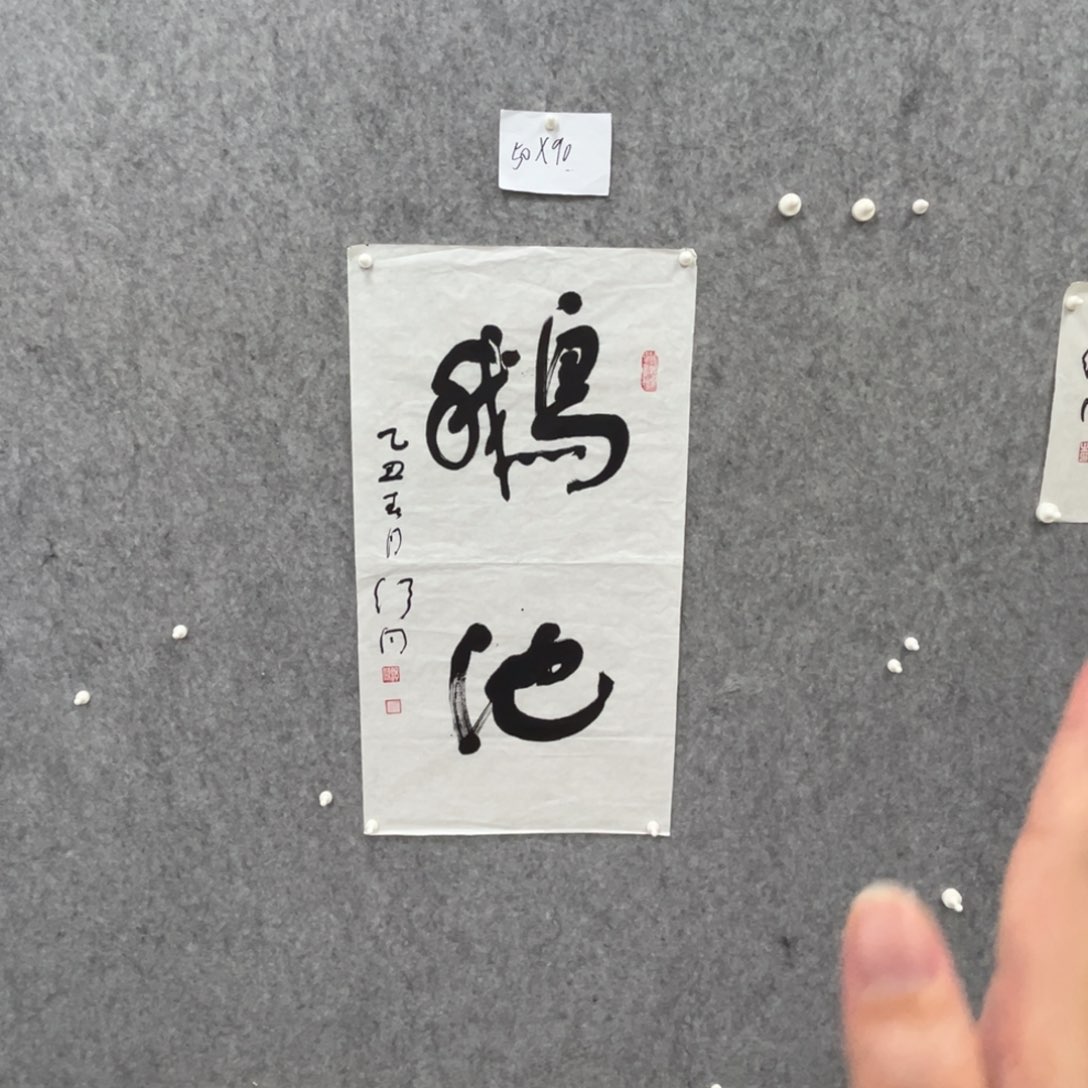 50X90
鹅
池
乙丑春月